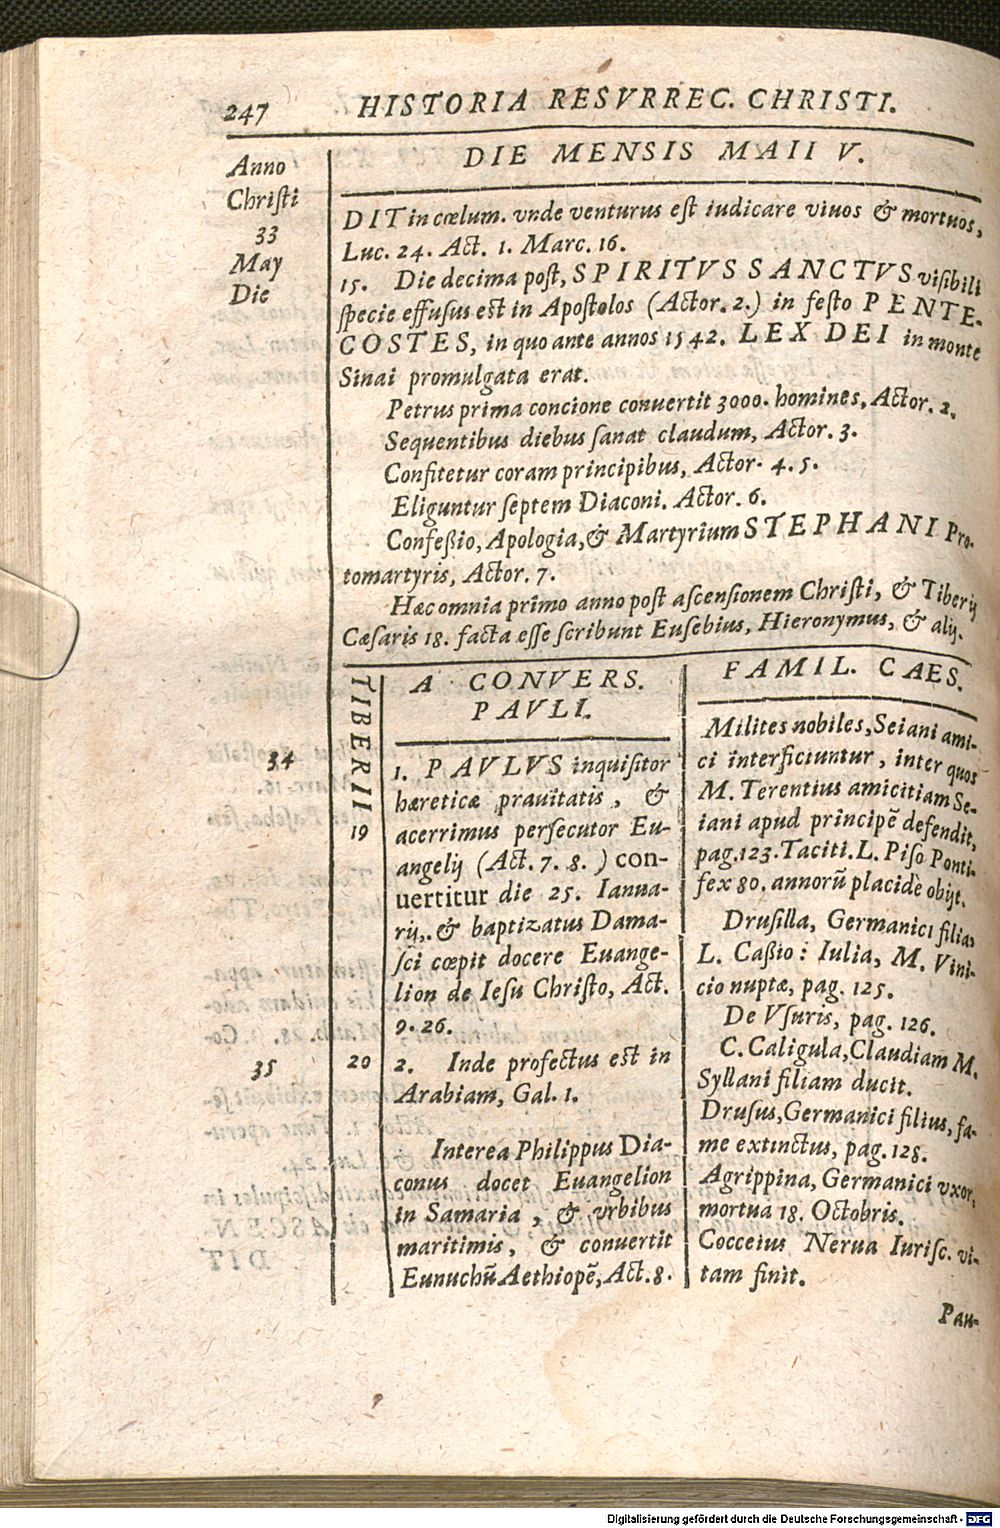 247 HISTORIA RESVRREC. CHRISTI.
Anno
Chriſti
33
May
Die
DIE MENSIS MAII V.
DIT in cœlum. vnde venturus eſt iudicare viuos & mortuos,
Luc. 24. Act. 1. Marc. 16.
15. Die decima poſt, SPIRITVS SANCTVS viſibili
ſpecie effuſus eſt in Apoſtolos (Actor. 2.) in feſto PENTE-
COSTES, in quo ante annos 1542. LEX DEI in monte
Sinai promulgata erat.
Petrus prima concione conuertit 3000. homines, Actor. 2.
Sequentibus diebus ſanat claudum, Actor. 3.
Confitetur coram principibus, Actor. 4. 5.
Eliguntur ſeptem Diaconi. Actor. 6.
Confeßio, Apologia, & Martyrium STEPHANI Pro-
tomartyris, Actor. 7.
Hæc omnia primo anno poſt aſcenſionem Chriſti, & Tiberij
Cæſaris 18. facta eſſe ſcribunt Euſebius, Hieronymus, & alij.
TIBERII
34
19
35
20
A CONVERS.
PAVLI.
1. PAVLVS inquiſitor
hæreticæ prauitatis, &
acerrimus perſecutor Eu-
angelij (Act. 7. 8.) con-
uertitur die 25. Ianua-
rij,. & baptizatus Dama-
ſci cœpit docere Euange-
lion de Ieſu Chriſto, Act.
9. 26.
2. Inde profectus est in
Arabiam, Gal. 1.
Interea Philippus Dia-
conus docet Euangelion
in Samaria, & vrbibus
maritimis, & conuertit
Eunuchū Aethiopē, Act. 8.
FAMIL. CAES.
Milites nobiles, Seiani ami-
ci interficiuntur, inter quos
M. Terentius amicitiam Se-
iani apud principē defendit,
pag. 123. Taciti. L. Piſo Ponti-
fex 80. annorū placidè obijt.
Druſilla, Germanici filia,
L. Caßio: Iulia, M. Vini-
cio nuptæ, pag. 125.
De Vſuris, pag. 126.
C. Caligula, Claudiam M.
Syllani filiam ducit.
Druſus, Germanici filius, fa-
me extinctus, pag. 128.
Agrippina, Germanici vxor,
mortua 18. Octobris.
Cocceius Nerua Iuriſc. vi-
tam finit.
Pau-
Digitalisierung gefördert durch die Deutsche Forschungsgemeinschaft - DFG